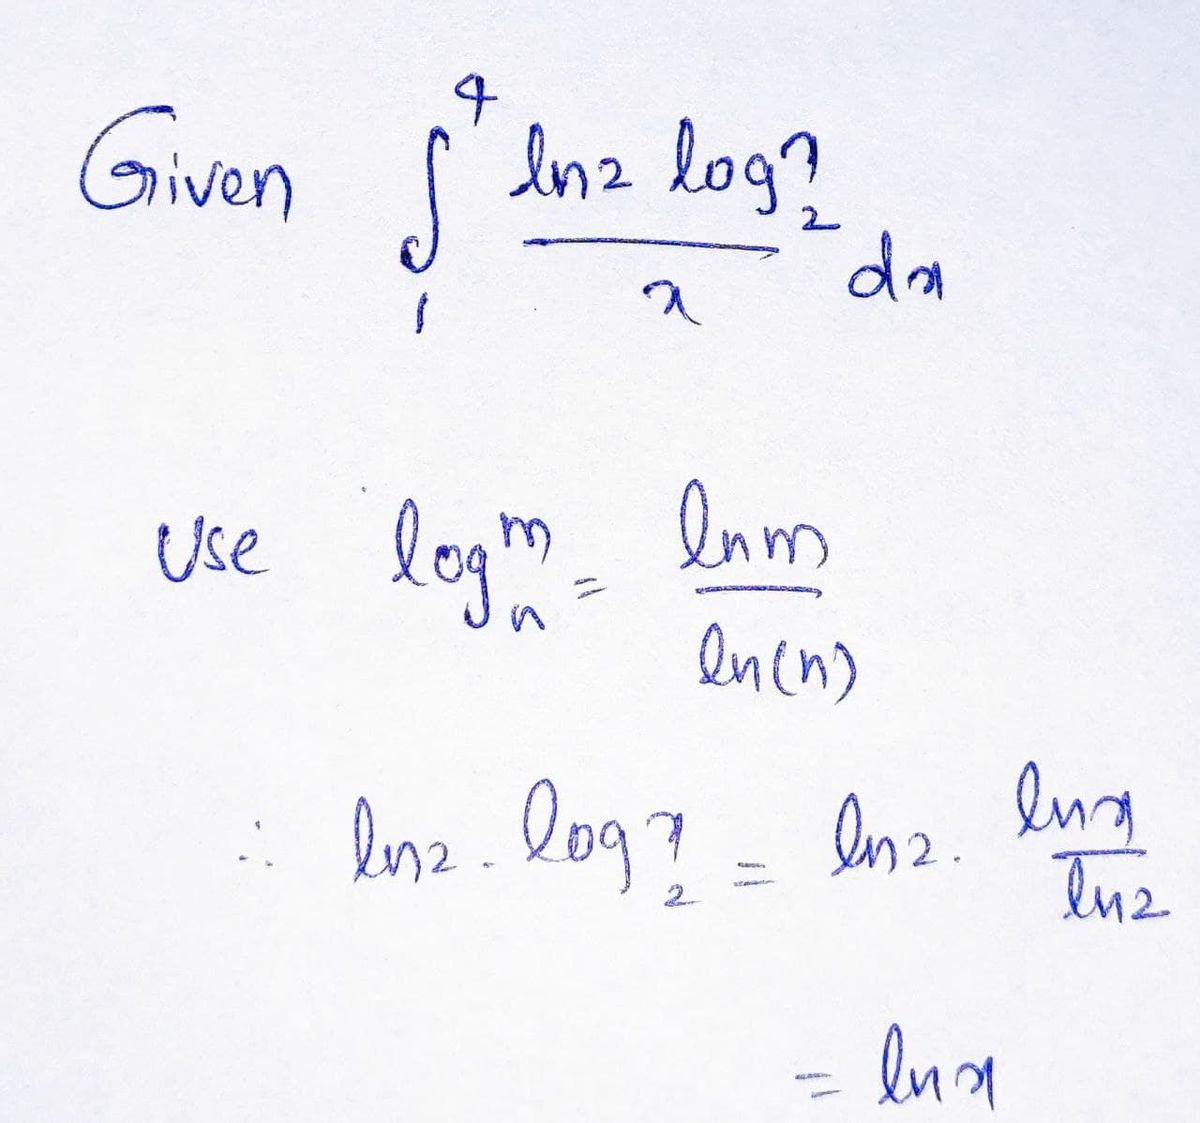 Given ∫₁⁴ (ln2 log₂ˣ)/x dx
Use logₙᵐ = ln m / ln(n)
∴ ln2 . log₂ˣ = ln2 . ln x / ln2
= ln x